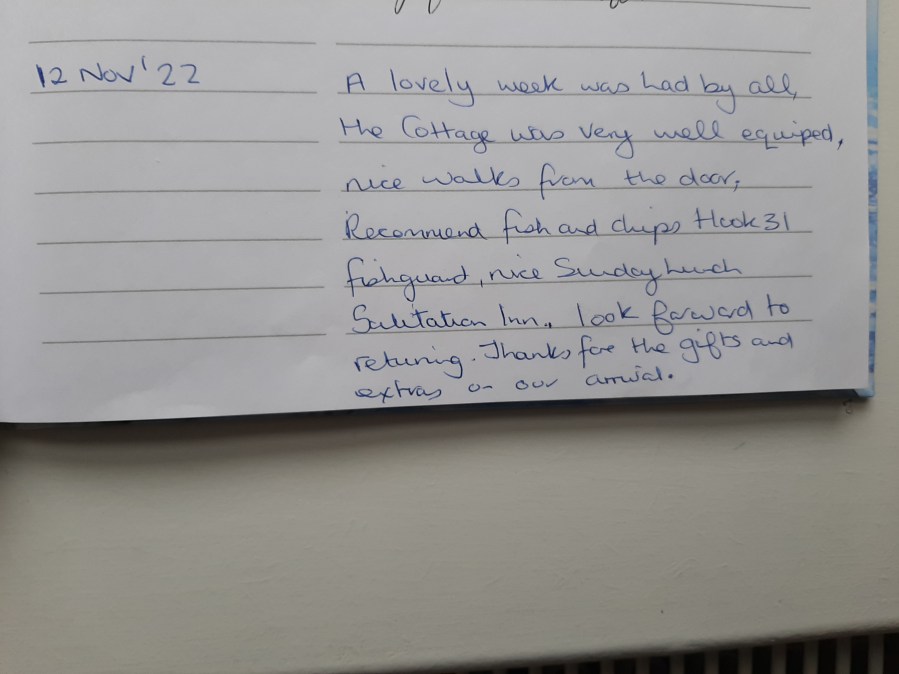 12 Nov '22
A lovely week was had by all,
the Cottage was very well equiped,
nice walks from the door,
Recommend fish and chips Hook31
fishguard, nice Sunday lunch
Salutation Inn., look forward to
returning. Thanks for the gifts and
extras on our arrival.